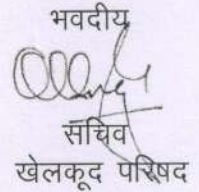 भवदीय
सचिव
खेलकूद परिषद